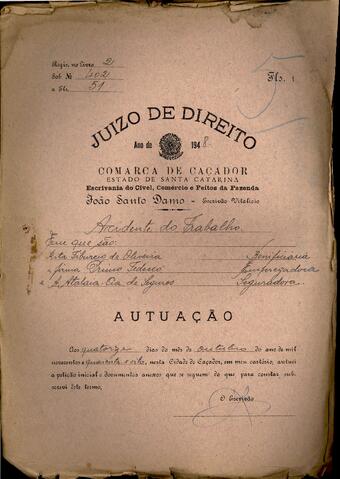 Regis. no Livro 2
Sob Nº 402
a Fls. 51
Fls. 1
5
JUIZO DE DIREITO
Ano de 1948
COMARCA DE CAÇADOR
ESTADO DE SANTA CATARINA
Escrivania do Civel, Comércio e Feitos da Fazenda
João Santo Damo - Escrivão Vitalício
Accidente do Trabalho
Em que são:
Rita Tiburcio de Oliveira Beneficiaria
a firma Primo Tedesco Empregadora
e A Atalaia Cia de Seguros Seguradora.
AUTUAÇÃO
Aos quatorze dias do mês de outubro do ano de mil
novecentos e quarenta e oito, nesta Cidade de Caçador, em meu cartório, autuei
a petição inicial e documentos anexos que se seguem do que, para constar sub-
screvi este termo,
O Escrivão